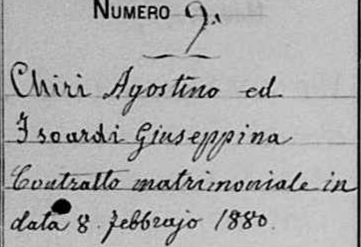 NUMERO 9.
Chiri Agostino ed
Isoardi Giuseppina
Contratto matrimoniale in
data 8. febbrajo 1880.